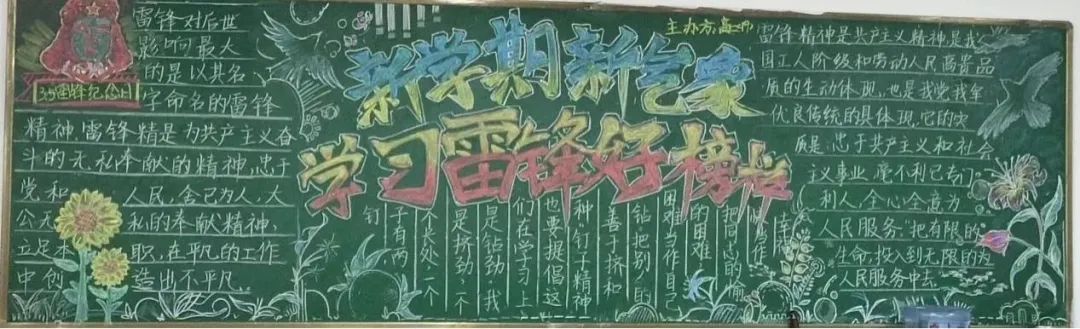 3.5雷锋纪念日
雷锋对后世
影响最大
的是以其名
字命名的雷锋
精神雷锋精是为共产主义奋
斗的无私奉献的精神,忠于
党和人民,舍己为人,大
公无私的奉献精神,
立足本职,在平凡的工作
中创造出不平凡
新学期新气象
学习雷锋好榜样
主办方:高
困难当作自己
的困难
把同志的愉
钻,把别的
善于挤和
种"钉子精神
也要提倡这
们在学习上
是钻劲,我
是挤劲,个
个长处,个
子有两
钉
雷锋精神是共产主义精神是我
国工人阶级和劳动人民高贵品
质的生动体现,也是我党我军
优良传统的具体现,它的实
质是:忠于共产主义和社会
议事业,毫不利己专门
利人,全心全意为
人民服务"把有限的
生命,投入到无限的为
人民服务中去